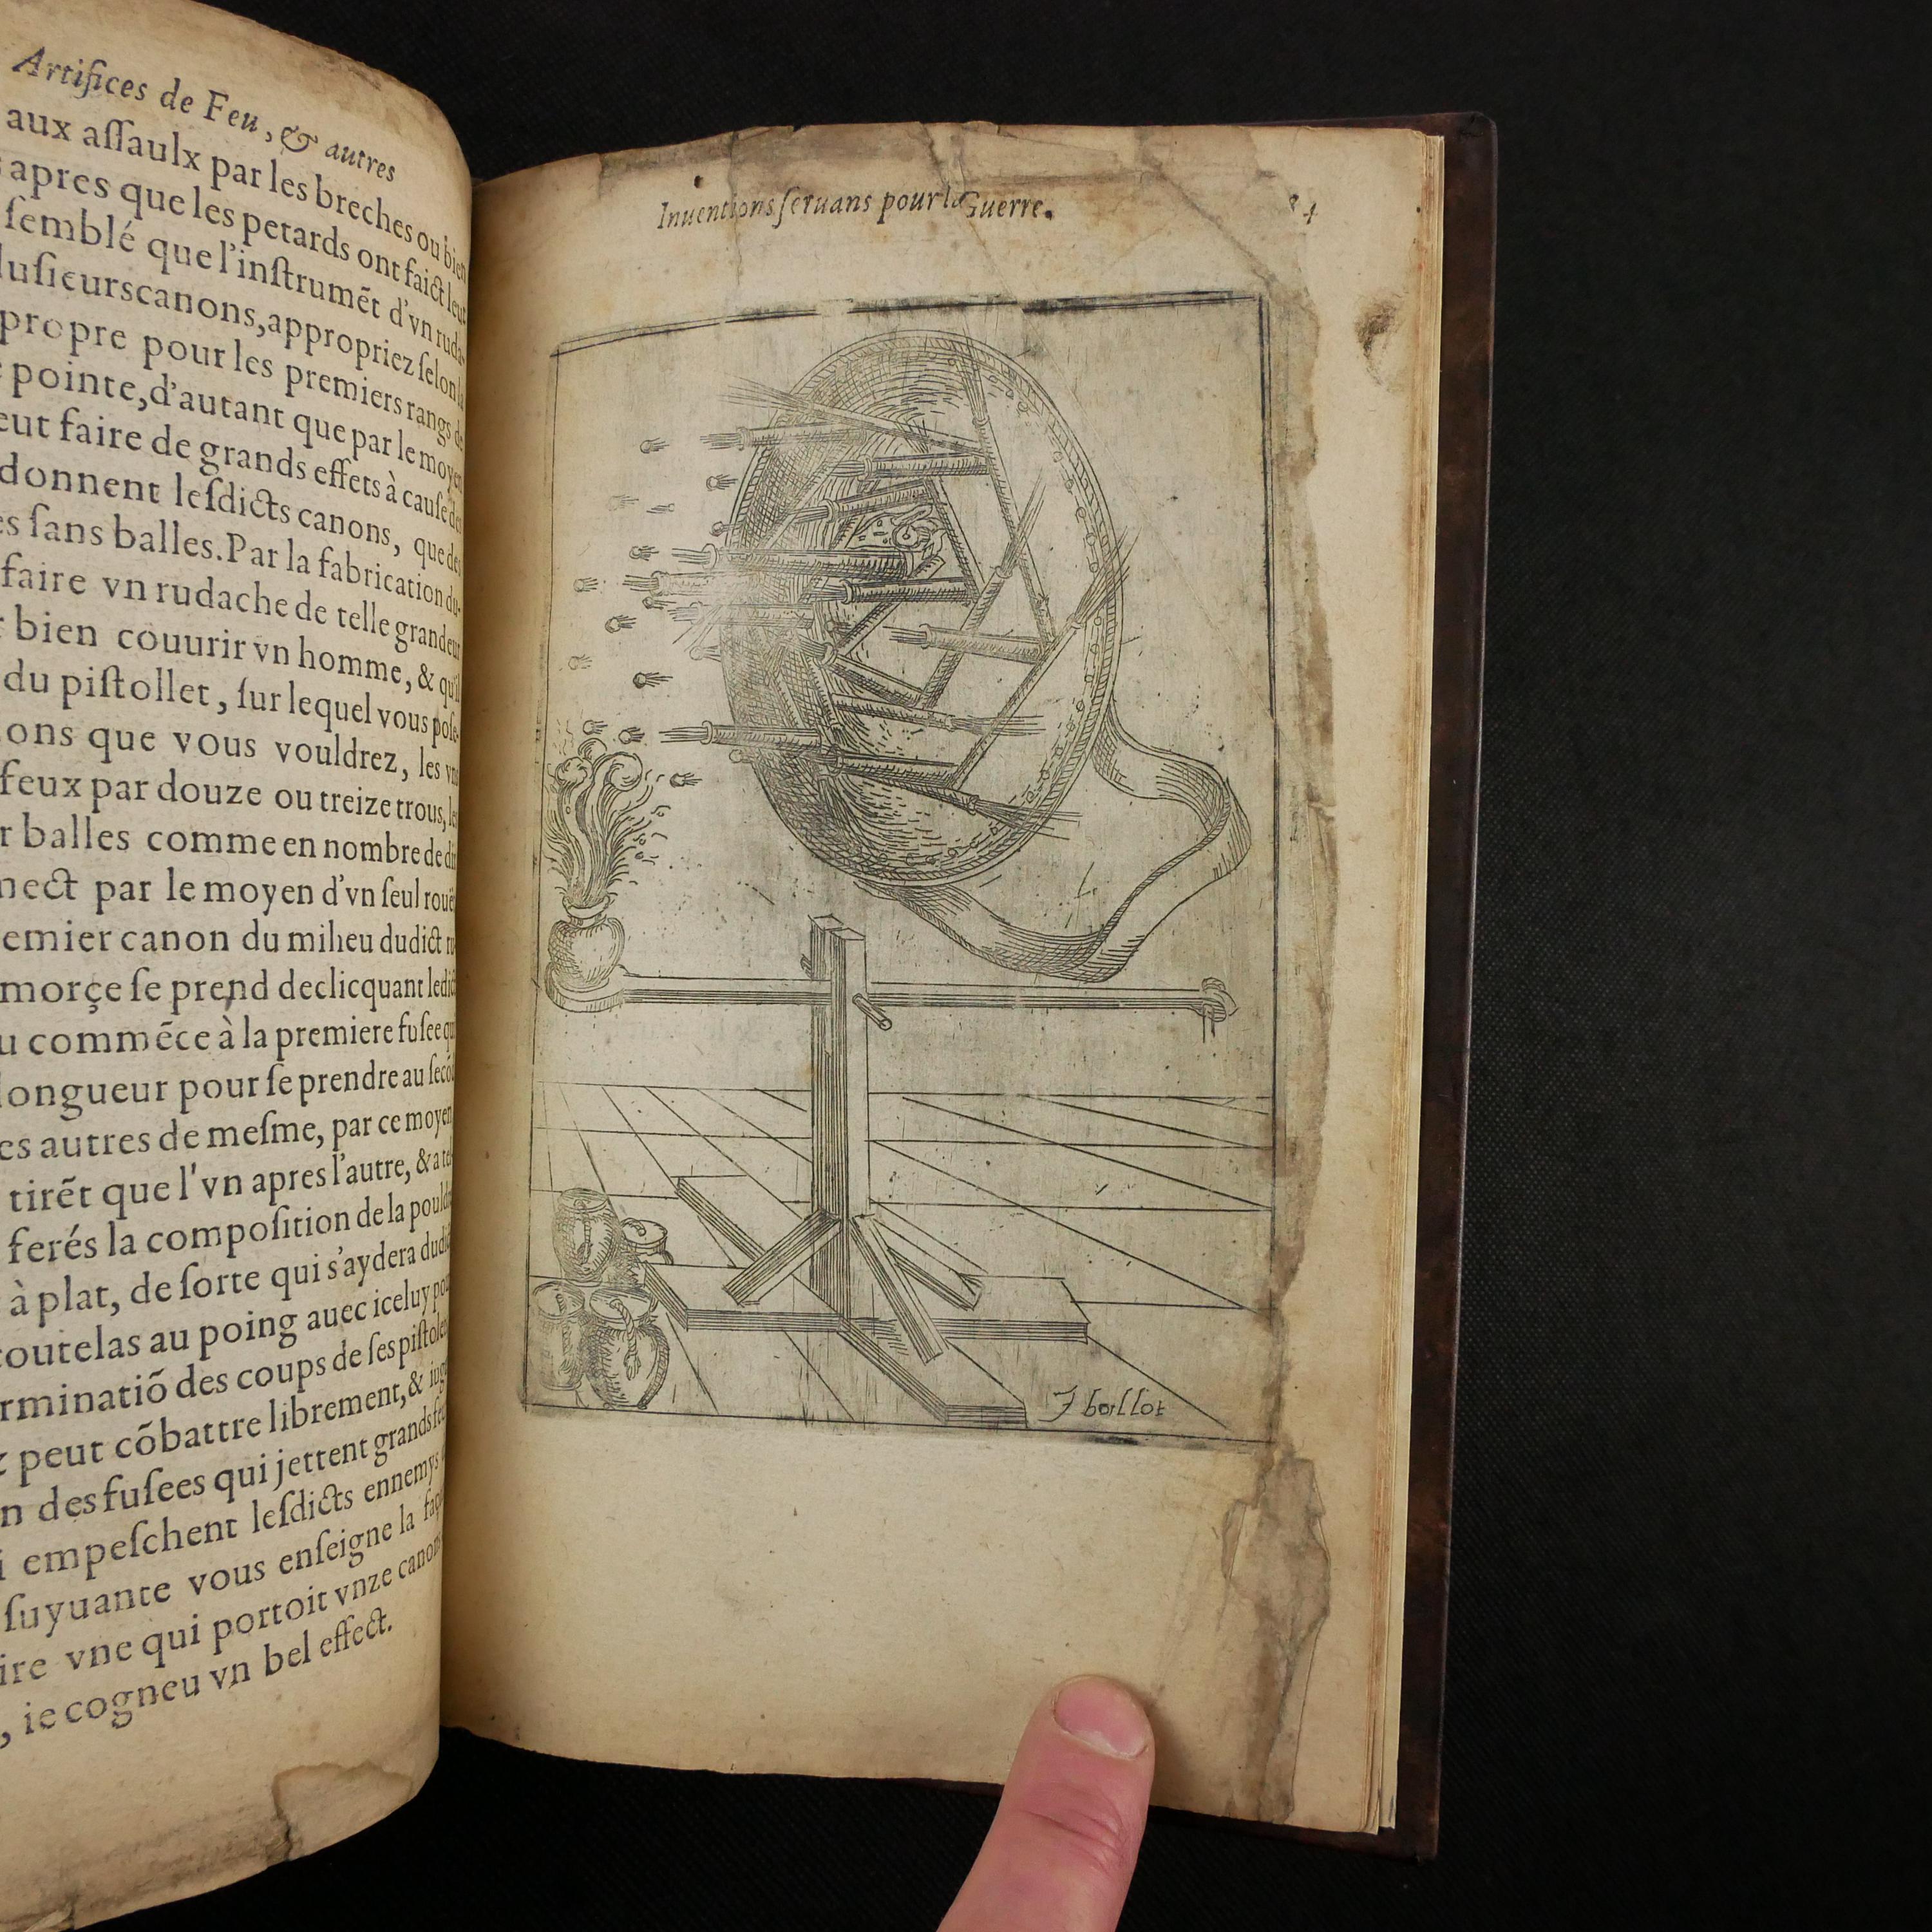 Artifices de Feu, & autres
aux aſſaulx par les breches ou bien
apres que les petards ont faict leur
ſemblé que l'inſtrumēt d'vn ruda-
luſieurscanons, appropriez ſelon la
propre pour les premiers rangs de
pointe, d'autant que par le moyen
eut faire de grands effets à cauſe des
donnent leſdicts canons, que des
es ſans balles. Par la fabrication du-
faire vn rudache de telle grandeur
bien couurir vn homme, & qu'il
du piſtollet, ſur lequel vous poſe-
ons que vous vouldrez, les vns
feux par douze ou treize trous, les
r balles comme en nombre de dix
nect par le moyen d'vn ſeul rouët
emier canon du milieu dudict ru
morçe ſe prend declicquant ledict
u commēce à la premiere fuſee qui
longueur pour ſe prendre au ſecōd
es autres de meſme, par ce moyen
tirēt que l'vn apres l'autre, & a
ferés la compoſition de la pould
à plat, de ſorte qui s'aydera dudi
coutelas au poing auec iceluy po
rminatiō des coups de ſes piſtole
z peut cōbattre librement, & iug
n des fuſees qui jettent grands fe
i empeſchent leſdicts ennemys
ſuyuante vous enſeigne la faç
ire vne qui portoit vnze canon
, ie cogneu vn bel effect.
Inuentions ſeruans pour la Guerre. 84
J boillot